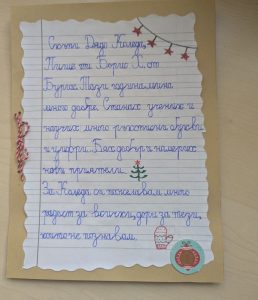 Скъпи Дядо Коледа,
Пише ти Борис Х. от
Бургас. Тази година мина
много добре. Станах ученик и
научих много ръкописни букви
и цифри. Бях добър и намерих
нови приятели.
За Коледа си пожелавам много
радост за всички, дори за тези,
които не познавам.